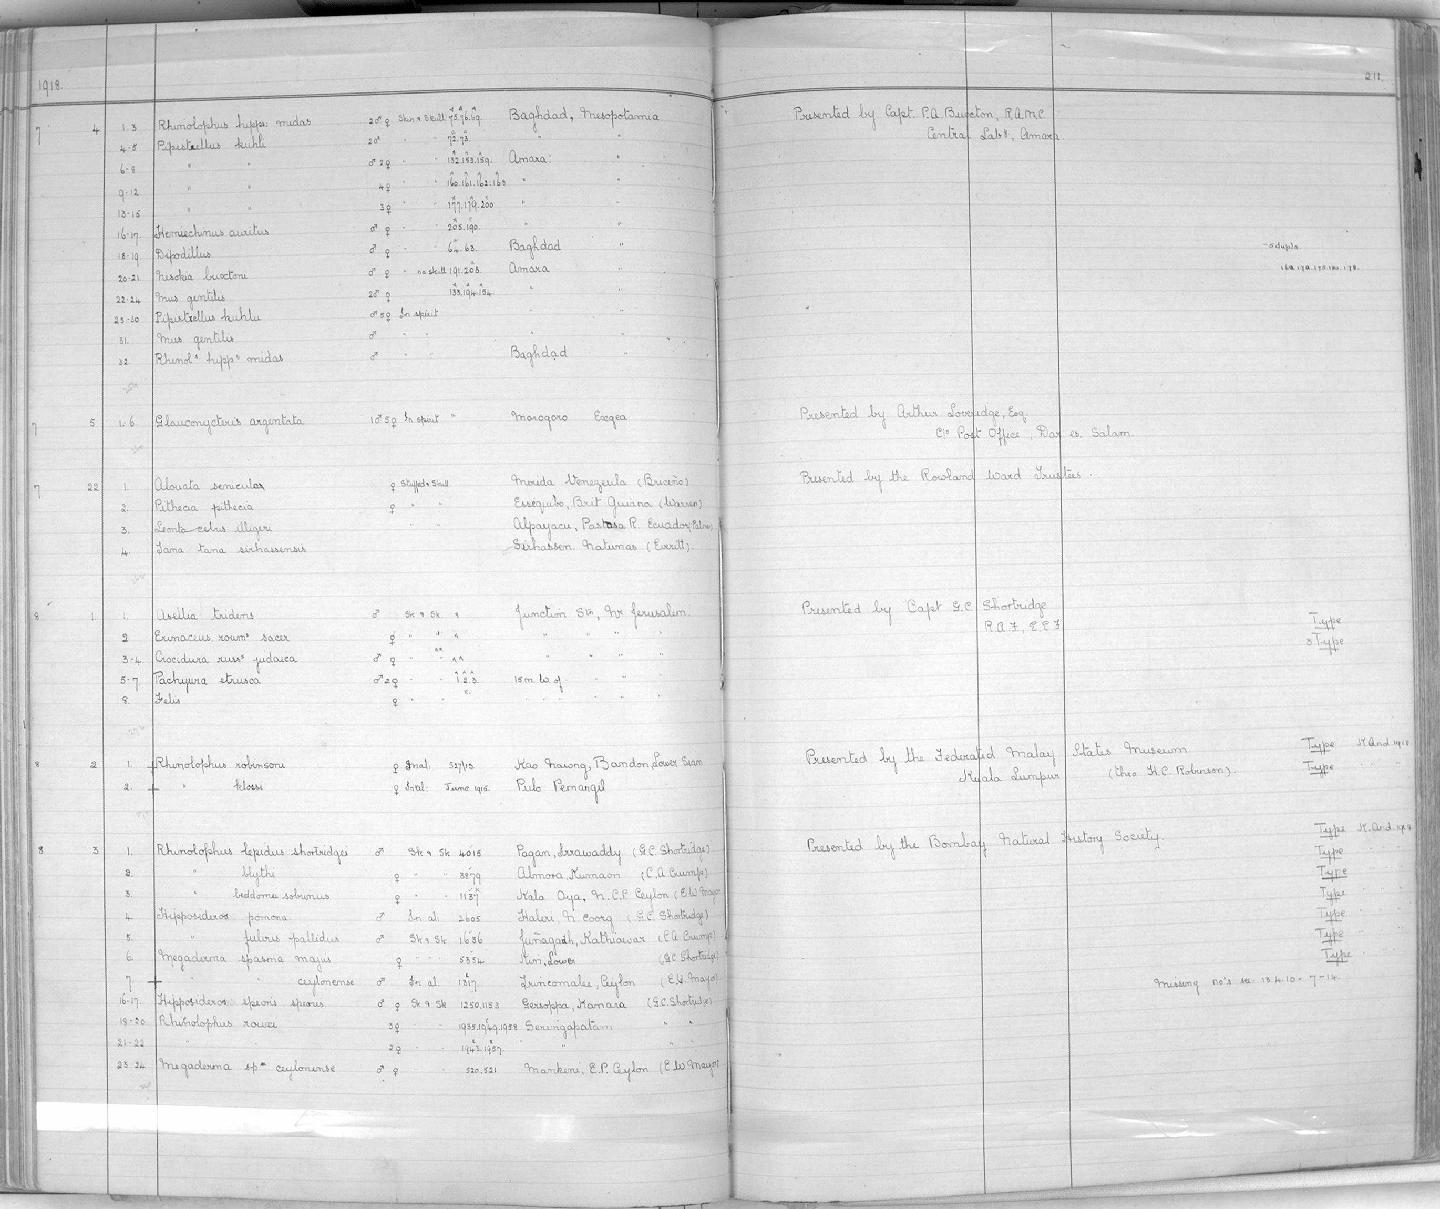 1918.
211.
7 4 1.3 Rhinolophus hipp: midas 2♂ ♀ Skin & Skull 75.76.69. Baghdad, Mesopotamia Presented by Capt. P.A. Buxton, R.A.M.C
4-5 Pipistrellus kuhli 2♂ " 72.73. " " Central Laby, Amara
6-8 " " ♂ 2♀ " " 132.153.159. Amara: "
9-12 " " 4♀ " " 160.161.162.163 " "
13-15 " " 3♀ " " 177.179.200 " "
16-17. Hemiechinus auritus ♂ ♀ " " 205.190. " "
18-19 Dipodillus ♂ ♀ " " 64.63. Baghdad "
20-21. Nesokia buxtoni ♂ ♀ " no skull 191.203. Amara "
22-24 Mus gentilis 2♂ ♀ " " 133.194.154. " "
25-30 Pipistrellus kuhlii ♂ 5♀ In spirit " "
31. Mus gentilis ♂ " " " "
32. Rhinols hipps midas ♂ " " Baghdad "
7 5 1-6. Glauconycteris argentata 1♂ 5♀ In spirit " Morogoro Exgea Presented by Arthur Loveridge, Esq.
C/o Post Office, Dar es. Salam.
7 22 1. Alouata seniculus ♀ Stuffed & Skull Merida Venezeula (Briceño) Presented by the Rowland Ward Trustees.
2. Pithecia pithecia ♀ " " Essequibo, Brit Guiana (Warren)
3. Leontocebus illigeri " " Alpayacu, Pastasa R. Ecuador
4. Tana tana sirhassensis Sirhassen. Natunas (Everitt).
8 1. 1. Asellia tridens ♂ Sk & Sk " Junction Stn, Nr Jerusalem. Presented by Capt G.C. Shortridge
R.A.F, E.E.F Type
2 Erinaceus roums sacer ♀ " " " " " " " " 3 Type
3-4. Crocidura russs judaica ♂ ♀ " " " " " "
5-7 Pachyura etrusca ♂ 2♀ " " 1.2.3. 15 m W of " "
8. Felis ♀ " " " " " "
8 2 1. Rhinolophus robinsoni ♀ In al. 527/13. Kao Nawng, Bandon, Lower Siam Presented by the Federated Malay States Museum Type K.And. 1918
2. " klossi ♀ In al. June 1915. Pulo Pemangil Kuala Lumpur (thro H.C. Robinson). Type " "
8 3 1. Rhinolophus lepidus shortridgei ♂ Sk & Sk 4015 Pagan, Irrawaddy (G.C. Shortridge) Presented by the Bombay Natural History Society. Type K.And. 1918
2. " blythi ♀ " " 3879 Almora, Kumaon (C.A Crump) Type
3. " beddomei sobrinus ♀ " " 1137 Kala Oya, N.C.P. Ceylon (E.W Mayor Type
4. Hipposideros pomona ♂ In al. 2605 Haleri, N. Coorg (G.C. Shortridge) Type
5. " fulvus pallidus ♂ Sk & Sk 1636 Junagadh, Kathiawar (C.A Crump) Type
6. Megaderma spasma majus ♀ " " 5354 (G.C Shortridge Type
7 " " ceylonense ♂ In al. 1317. Trincomalee, Ceylon (E.W. Mayor) Type
16-17. Hipposideros speoris speoris ♂ ♀ Sk & Sk 1250.1153 Gersoppa, Kanara (G.C. Shortridge) Missing no's see 18.4.10 - 7-14.
18-20 Rhinolophus rouxi 3♀ " " 1935.1949.1958 Seringapatam " "
21-22 " " 2♀ " " 1943.1957. " " "
23-24 Megaderma spa ceylonense ♂ ♀ " " 520.521 Mankeni, E.P. Ceylon (E.W Mayor